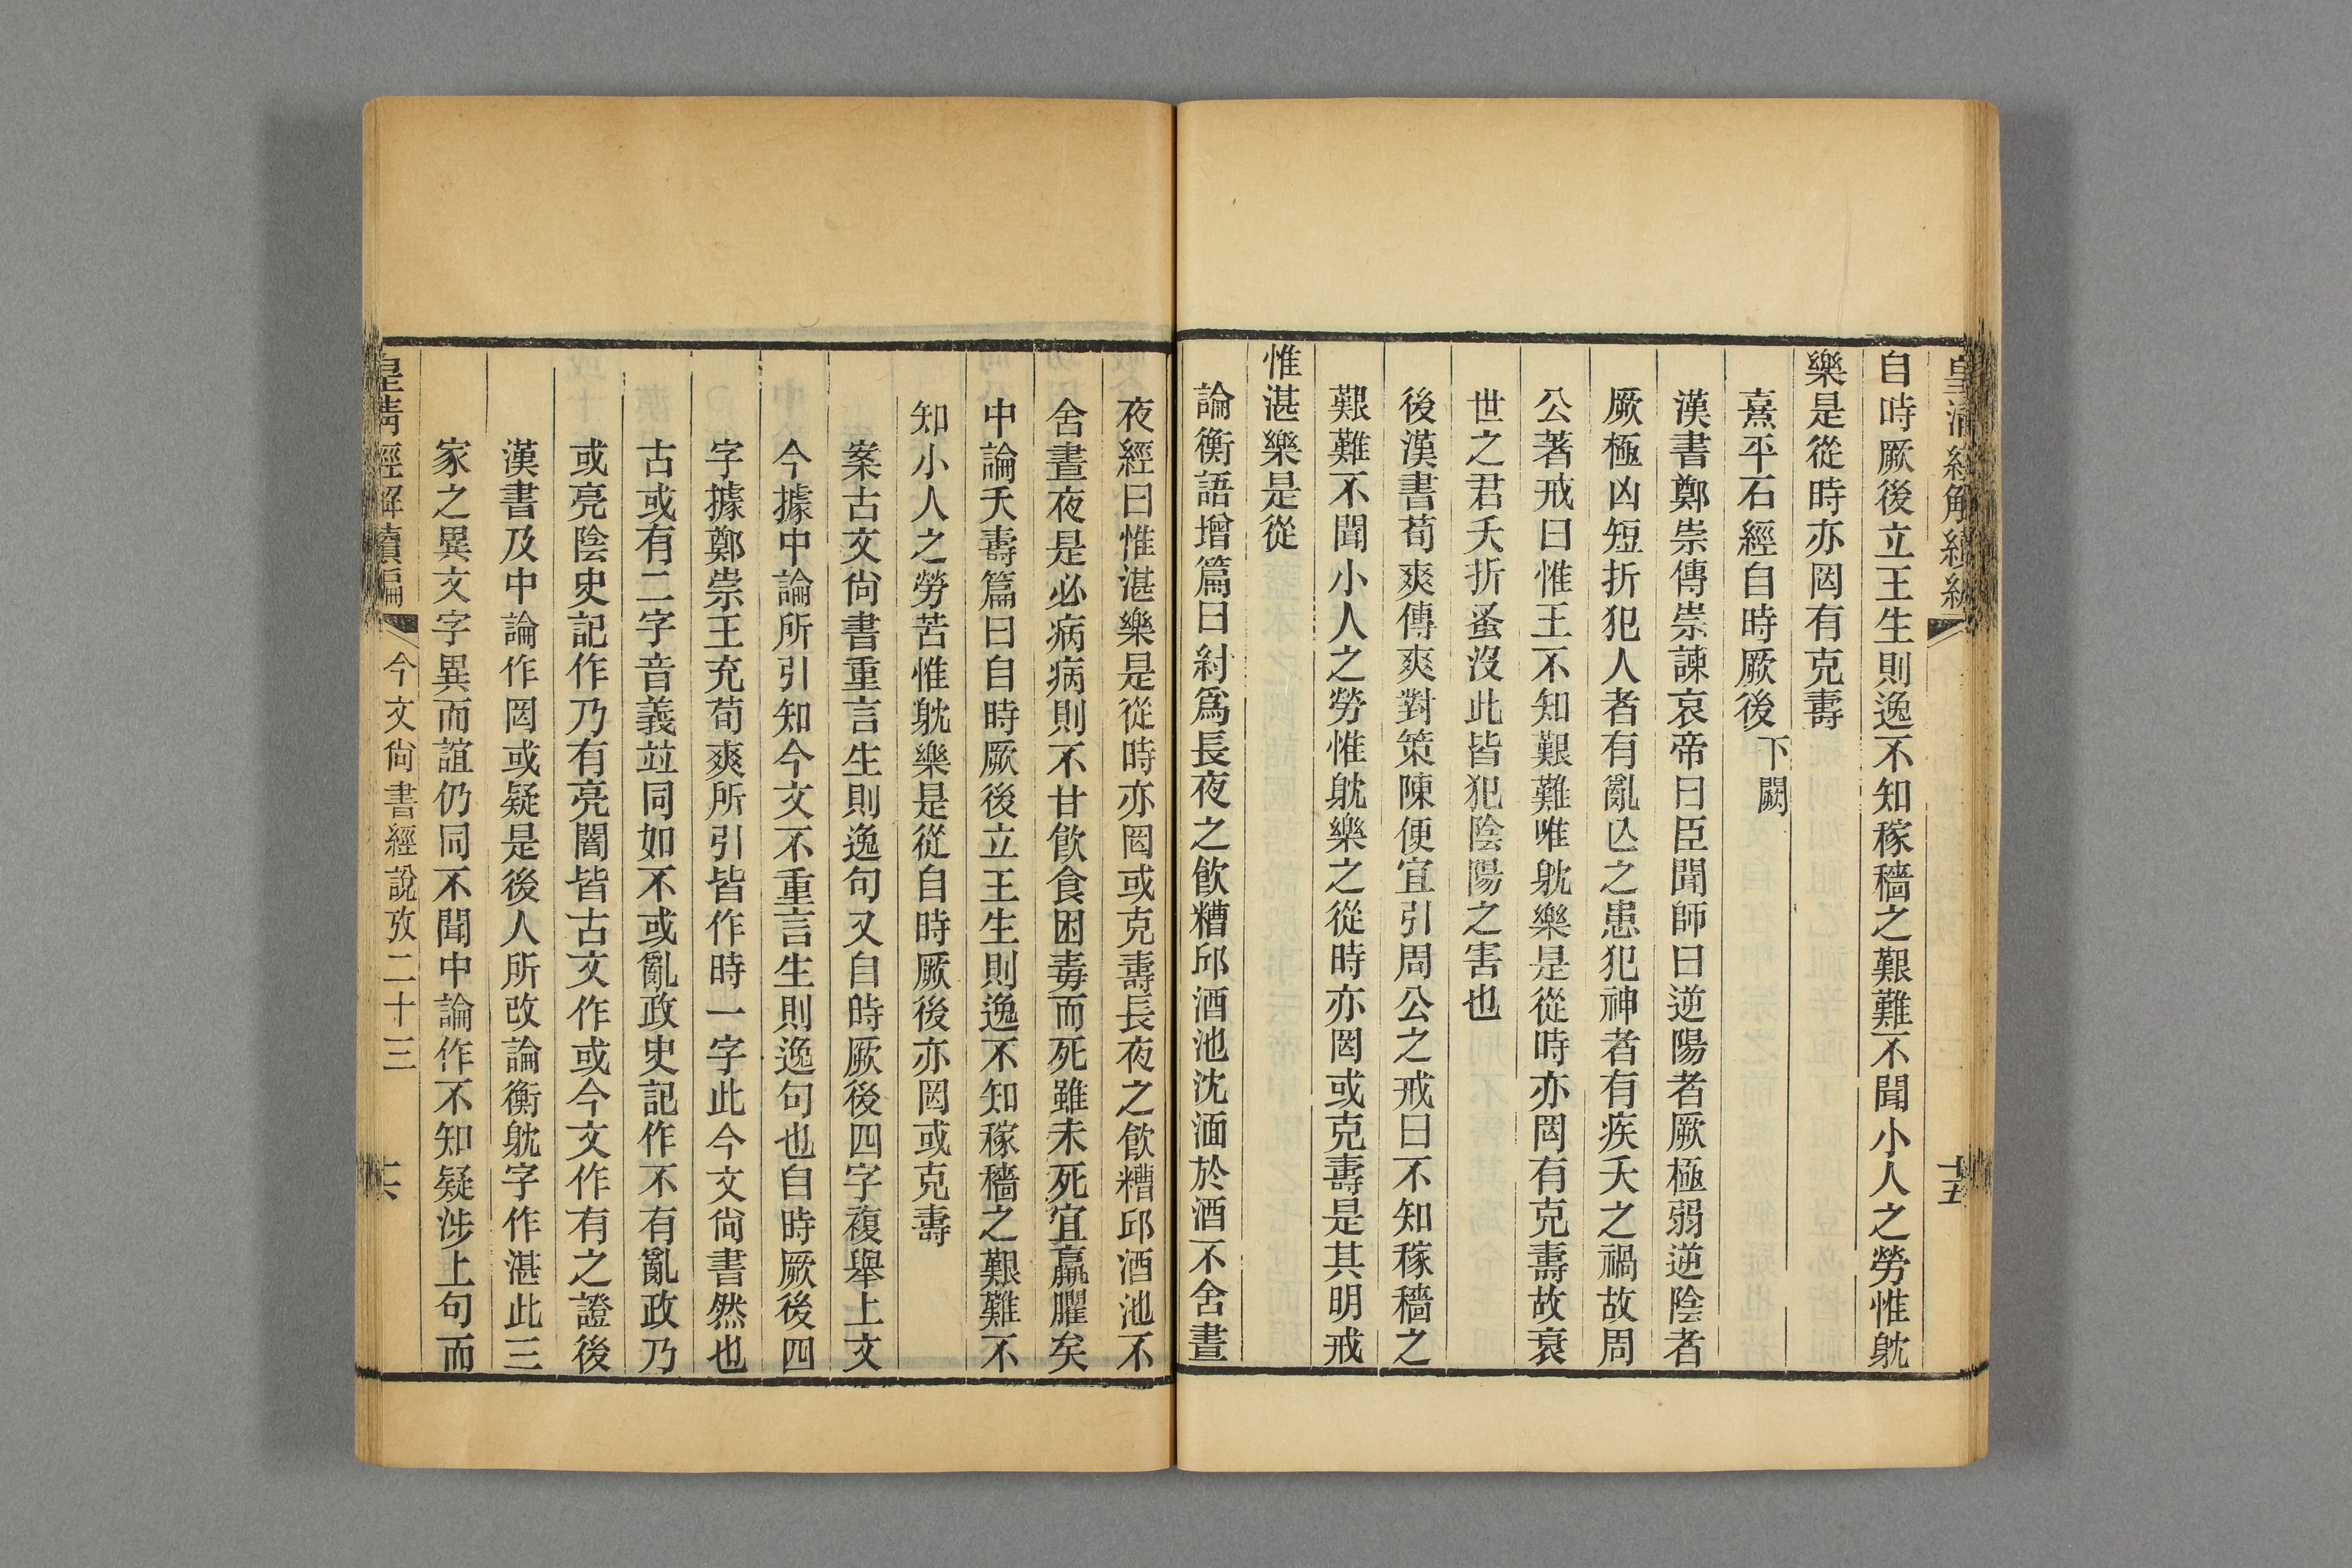 皇清經解續編
十五
自時厥後立王生則逸不知稼穡之艱難不聞小人之勞惟躭
樂是從時亦罔有克壽
熹平石經自時厥後下闕
漢書鄭崇傳崇諫哀帝曰臣聞師曰逆陽者厥極弱逆陰者
厥極凶短折犯人者有亂亾之患犯神者有疾夭之禍故周
公著戒曰惟王不知艱難唯躭樂是從時亦罔有克壽故衰
世之君夭折蚤沒此皆犯陰陽之害也
後漢書荀爽傳爽對策陳便宜引周公之戒曰不知稼穡之
艱難不聞小人之勞惟躭樂之從時亦罔或克壽是其明戒
惟湛樂是從
論衡語增篇曰紂爲長夜之飮糟邱酒池沈湎於酒不舍晝
夜經曰惟湛樂是從時亦罔或克壽長夜之飮糟邱酒池不
舍晝夜是必病病則不甘飮食困毒而死雖未死宜羸臞矣
中論夭壽篇曰自時厥後立王生則逸不知稼穡之艱難不
知小人之勞苦惟躭樂是從自時厥後亦罔或克壽
案古文尙書重言生則逸句又自時厥後四字複舉上文
今據中論所引知今文不重言生則逸句也自時厥後四
字據鄭崇王充荀爽所引皆作時一字此今文尙書然也
古或有二字音義竝同如不或亂政史記作不有亂政乃
或亮陰史記作乃有亮闇皆古文作或今文作有之證後
漢書及中論作罔或疑是後人所改論衡躭字作湛此三
家之異文字異而誼仍同不聞中論作不知疑涉上句而
皇清經解續編
今文尙書經說攷二十三
十六